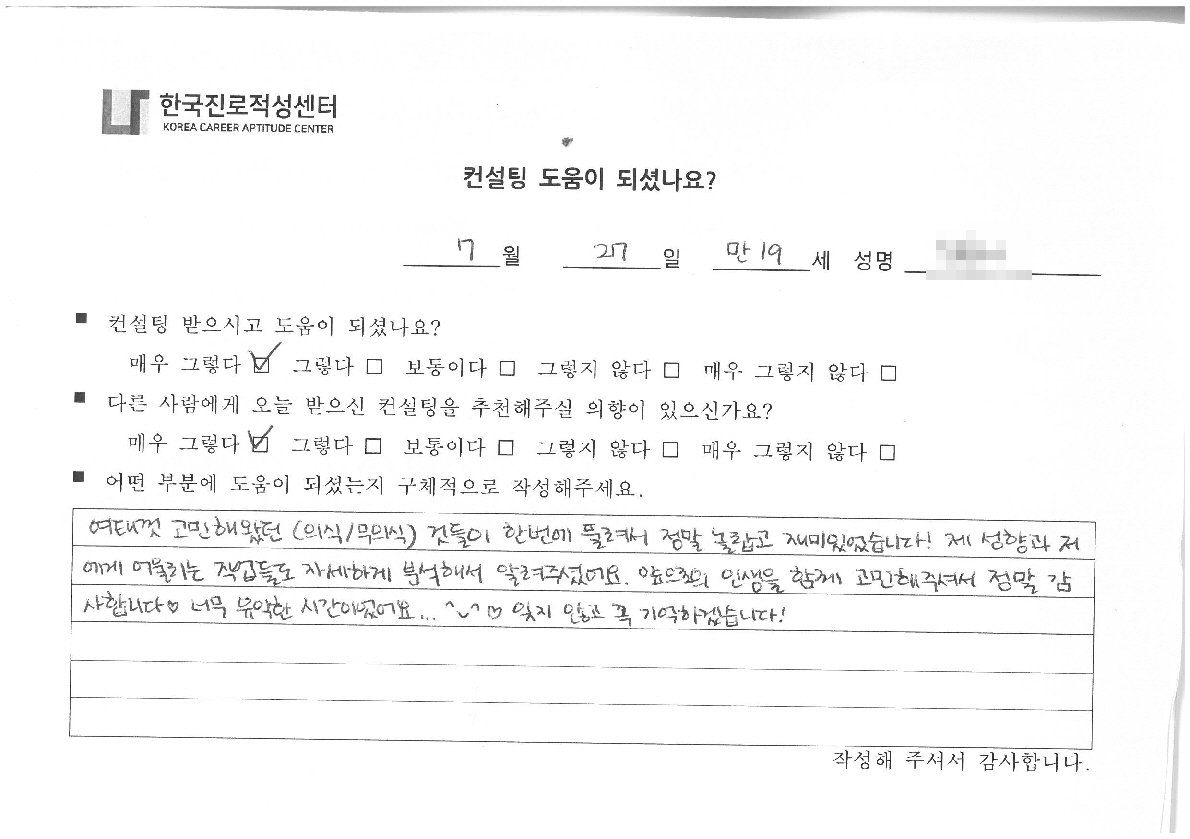 한국진로적성센터
KOREA CAREER APTITUDE CENTER
컨설팅 도움이 되셨나요?
7 월 27 일 만 19 세 성명
■ 컨설팅 받으시고 도움이 되셨나요?
매우 그렇다 ☑ 그렇다 □ 보통이다 □ 그렇지 않다 □ 매우 그렇지 않다 □
■ 다른 사람에게 오늘 받으신 컨설팅을 추천해주실 의향이 있으신가요?
매우 그렇다 ☑ 그렇다 □ 보통이다 □ 그렇지 않다 □ 매우 그렇지 않다 □
■ 어떤 부분에 도움이 되셨는지 구체적으로 작성해주세요.
여태껏 고민해왔던 (의식/무의식) 것들이 한번에 풀려서 정말 놀랍고 재미있었습니다! 제 성향과 저
에게 어울리는 직업들도 자세하게 분석해서 알려주셨어요. 앞으로의 인생을 함께 고민해주셔서 정말 감
사합니다♡ 너무 유익한 시간이었어요... ^ᴗ^♡ 잊지 않고 꼭 기억하겠습니다!
작성해 주셔서 감사합니다.